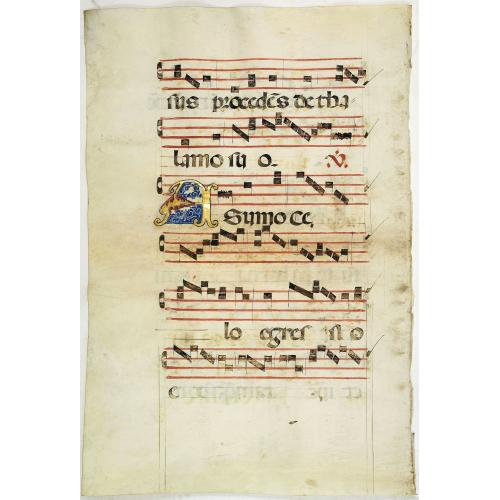 sus procedẽs de tha
lamo su o. ℣.
A Sumo ce,
lo egres si o
e